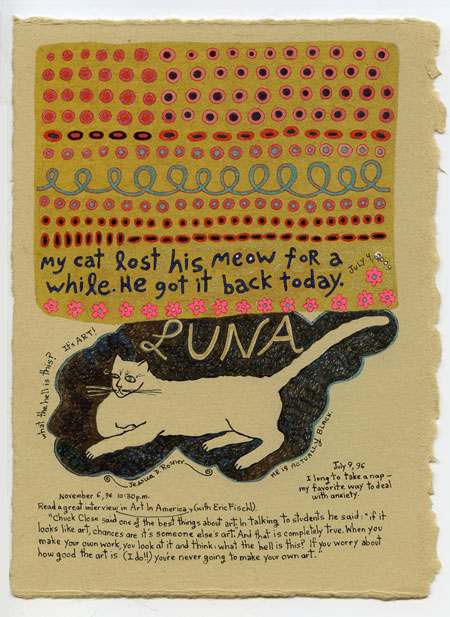 my cat lost his meow for a
while. He got it back today.
July 4,
LUNA
what the hell is this? It's ART!
He is actually black.
Jessica D. Rosner
July 9, 96
I long to take a nap—
my favorite way to deal
with anxiety.
November 6, 96 10:30p.m.
Read a great interview in Art In America, (with Eric Fischl).
"Chuck Close said one of the best things about art. In talking to students he said: "if it
looks like art, chances are it's someone else's art. And that is completely true. When you
make your own work, you look at it and think: what the hell is this? If you worry about
how good the art is (I do!!) you're never going to make your own art."